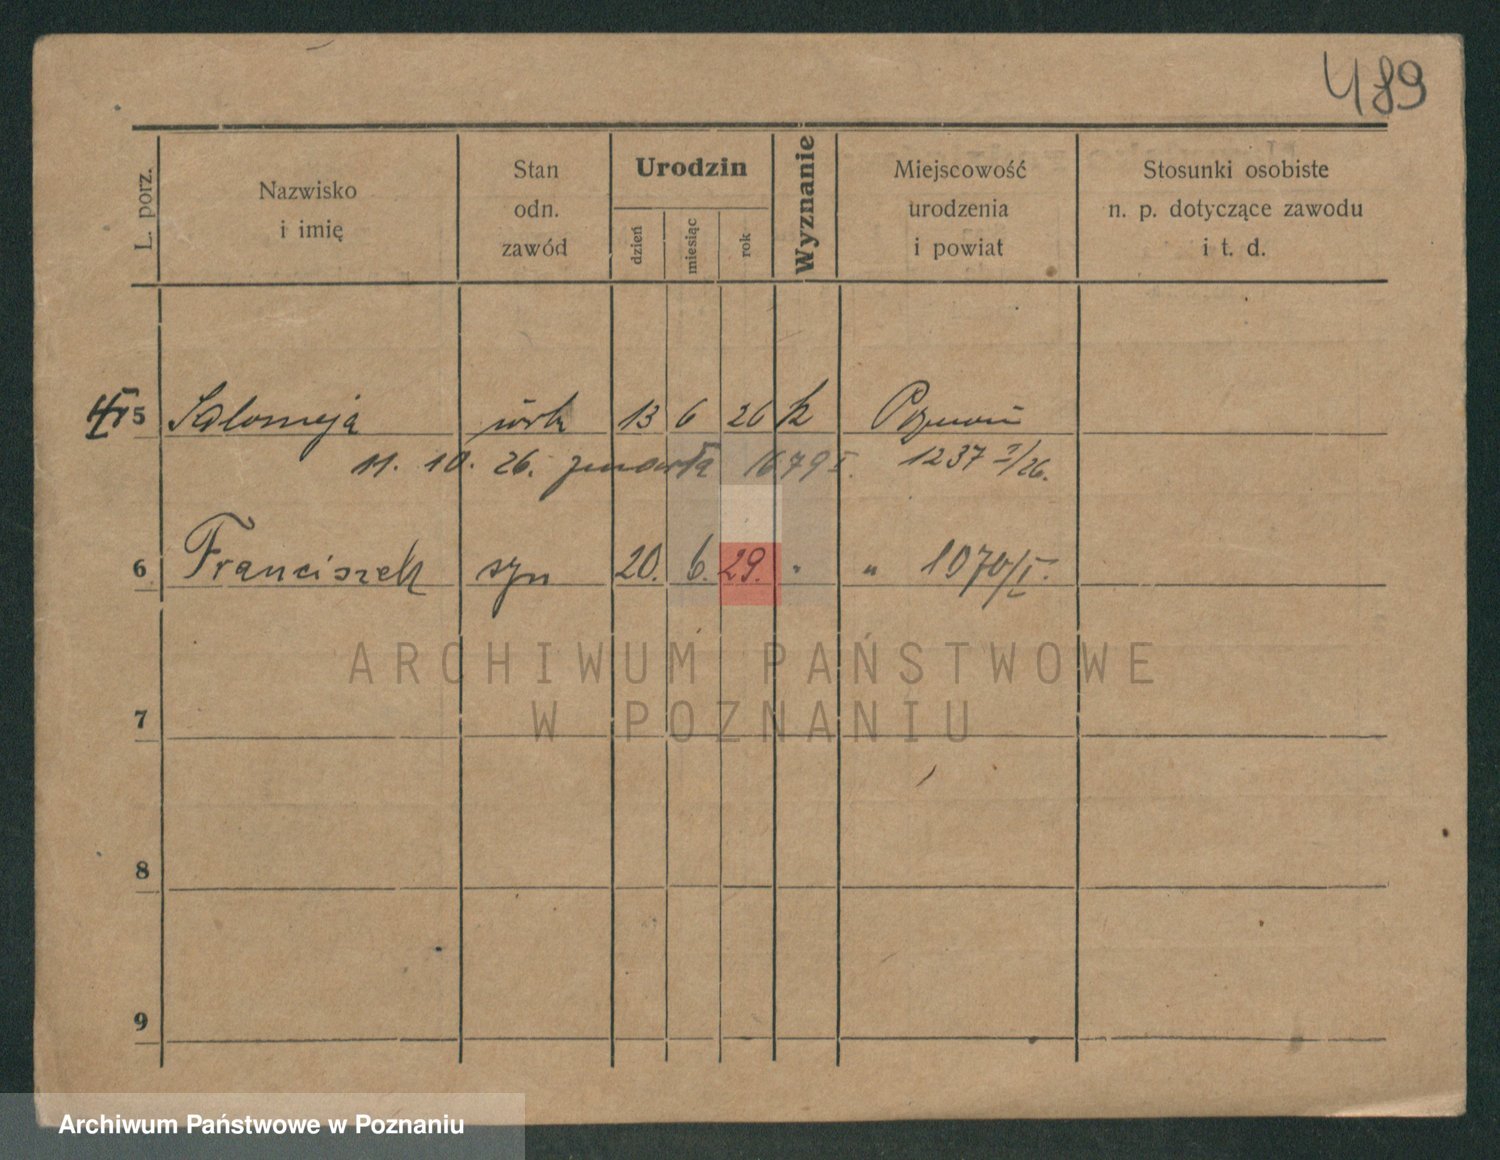 489
L. porz. Nazwisko i imię Stan odn. zawód Urodzin dzień miesiąc rok Wyznanie Miejscowość urodzenia i powiat Stosunki osobiste n. p. dotyczące zawodu i t. d.
5 Salomeja córk 13 6 26 k Poznań
11. 10. 26. zmarła 1679 I. 1237 I/26.
6 Franciszek syn 20. 6. 29. " " 1070/I.
ARCHIWUM PAŃSTWOWE
W POZNANIU
7
8
9
Archiwum Państwowe w Poznaniu